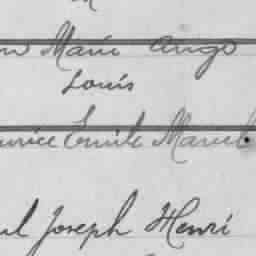 Marie Ange
Louis
Emile Marcel
Joseph Henri